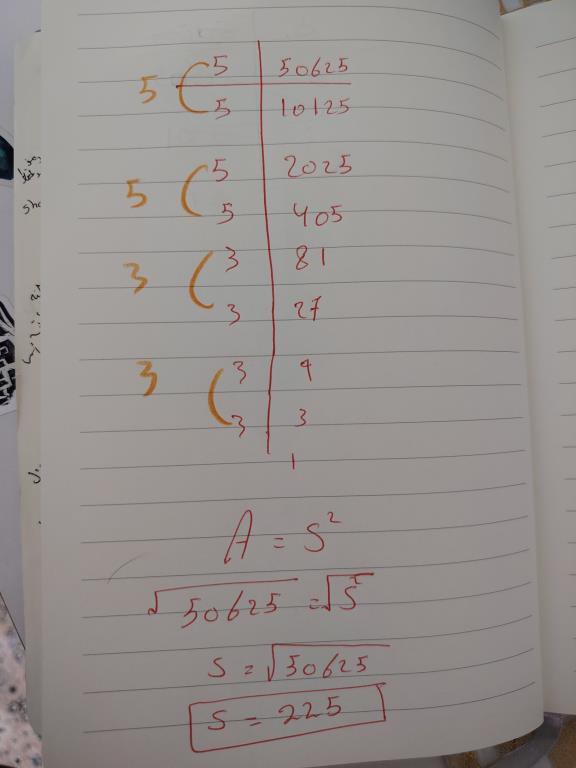 5 5 50625
5 10125
5 5 2025
5 405
3 3 81
3 27
3 3 9
3 3
1
A = S²
√50625 = √S²
S = √50625
S = 225